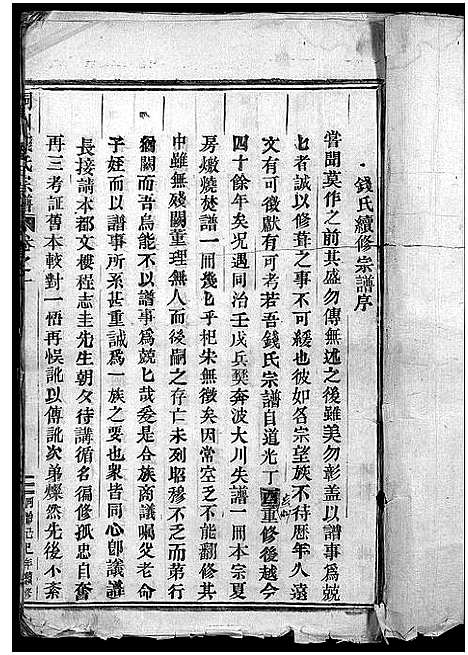 錢氏續修宗譜序
嘗聞莫作之前其盛勿傳無述之後雖美勿彰盖以譜事爲兢
兢者誠以修葺之事不可緩也彼如各宗望族不待歷年久遠
文有可徵獻有可考若吾錢氏宗譜自道光丁酉重修後越今
四十餘年矣况遇同治壬戌兵燹奔波大川失譜一冊本宗夏
房燉燒焚譜一冊幾乎杞朱無徵矣因常空乏不能翻修其
中雖無殘闕董理無人而後嗣之存亡未列昭穆不乏而第行
猶闕而吾烏能不以譜事爲兢兢哉爰是合族商議嘱受老命
子姪而以譜事所系甚重誠爲一族之要也衆皆同心卽議譜
長接請本都文樓程志圭先生朝夕待講循名徧修孤忠自奮
再三考証舊本較對一悟再悞訛以傳訛次弟燦然先後小紊
氏宗譜 卷之一